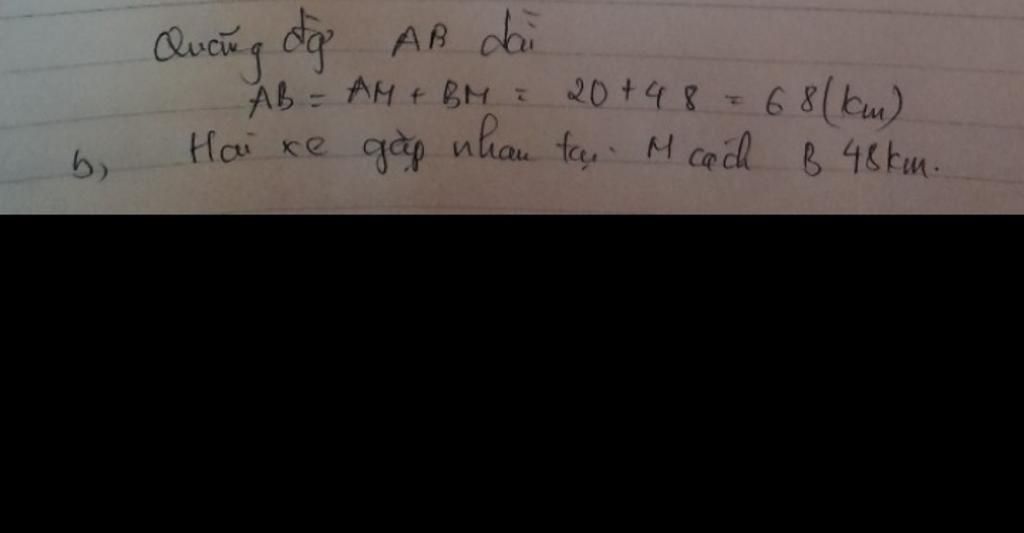 Quãng đg AB dài
AB = AM + BM = 20 + 48 = 68 (km)
b, Hai xe gặp nhau tại M cách B 48km.